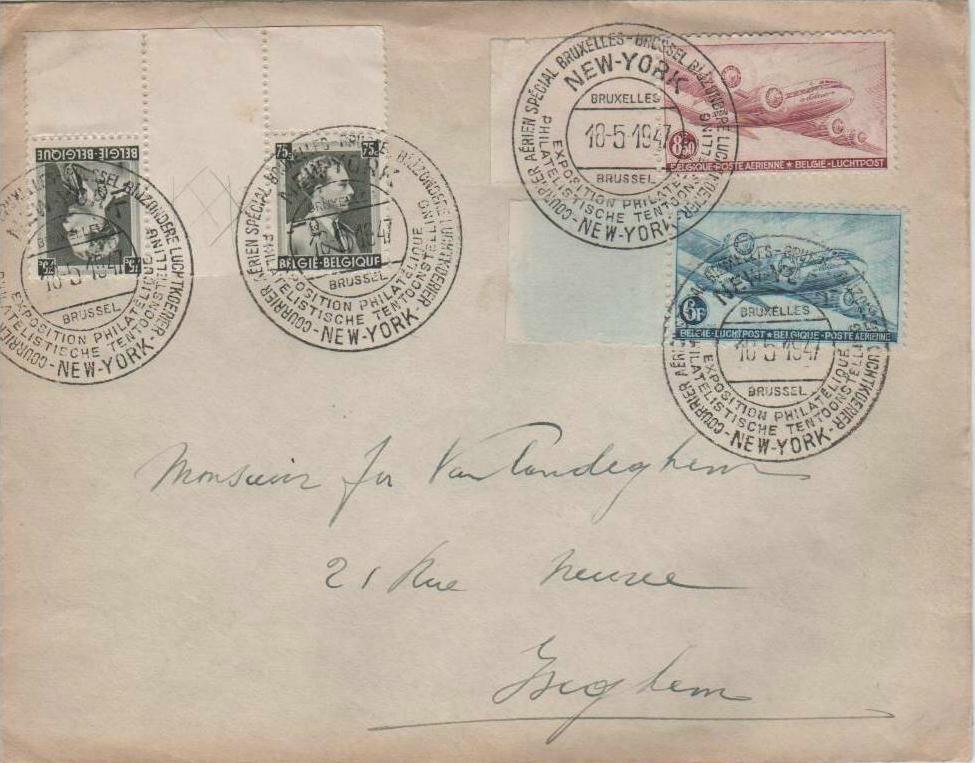 BELGIË-BELGIQUE
75c
75c
75c
75c
BELGIË-BELGIQUE
8F50
BELGIQUE-POSTE AERIENNE ★ BELGIË-LUCHTPOST
6F
BELGIË-LUCHTPOST ★ BELGIQUE-POSTE AÉRIENNE
COURRIER AÉRIEN SPÉCIAL BRUXELLES-BRUSSEL BIJZONDERE LUCHTKOERIER
NEW-YORK
BRUXELLES
18-5-1947
BRUSSEL
EXPOSITION PHILATÉLIQUE
PHILATELISTISCHE TENTOONSTELLING
-NEW-YORK-
COURRIER AÉRIEN SPÉCIAL BRUXELLES-BRUSSEL BIJZONDERE LUCHTKOERIER
NEW-YORK
BRUXELLES
18-5-1947
BRUSSEL
EXPOSITION PHILATÉLIQUE
PHILATELISTISCHE TENTOONSTELLING
-NEW-YORK-
COURRIER AÉRIEN SPÉCIAL BRUXELLES-BRUSSEL BIJZONDERE LUCHTKOERIER
NEW-YORK
BRUXELLES
18-5-1947
BRUSSEL
EXPOSITION PHILATÉLIQUE
PHILATELISTISCHE TENTOONSTELLING
-NEW-YORK-
COURRIER AÉRIEN BRUXELLES-BRUSSEL BIJZONDERE LUCHTKOERIER
NEW-YORK
BRUXELLES
18-5-1947
BRUSSEL
EXPOSITION PHILATÉLIQUE
PHILATELISTISCHE TENTOONSTELLING
-NEW-YORK-
Monsieur Jos Van Landeghem
21 Rue Neuve
Iseghem